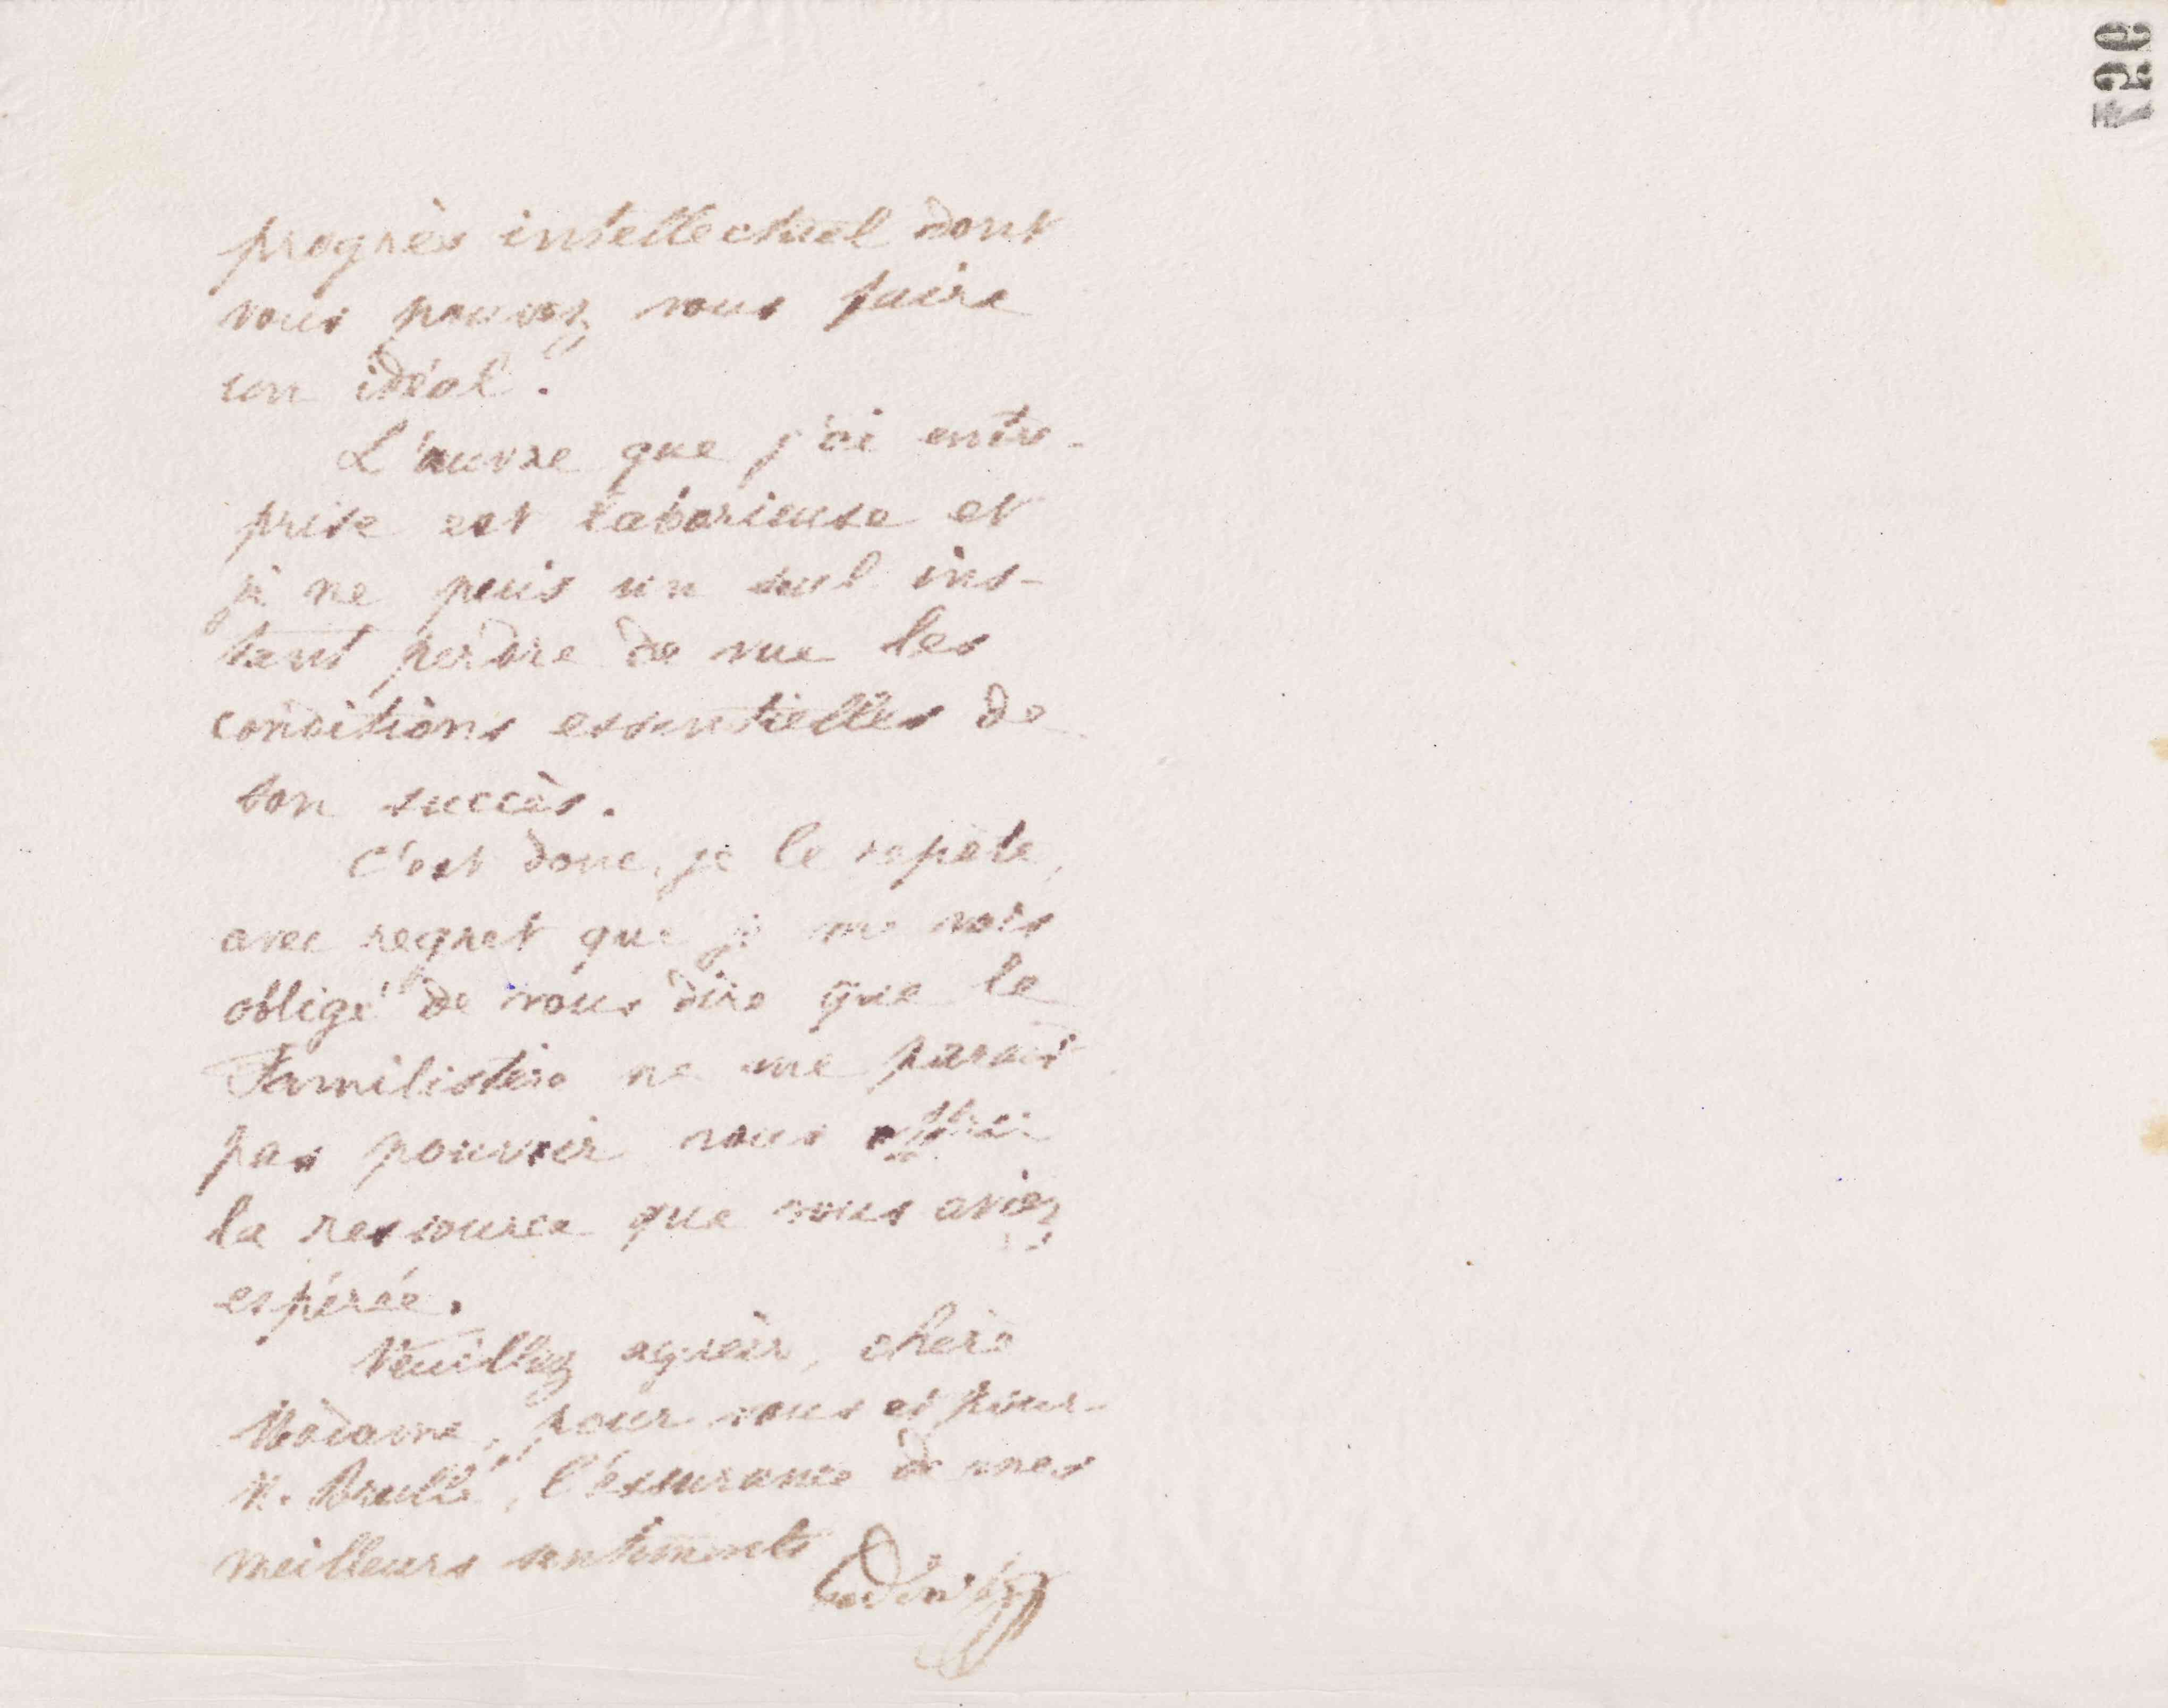 progrès intellectuel dont
vous pouvez vous faire
un idéal.
L'œuvre que j'ai entre-
prise est laborieuse et
je ne puis un seul ins-
tant perdre de vue les
conditions essentielles de
son succès.
C'est donc, je le répète,
avec regret que je me vois
obligé de vous dire que le
Familistère ne me paraît
pas pouvoir vous offrir
la ressource que vous aviez
espérée.
Veuillez agréer, chère
Madame, pour vous et pour
M. Brullé, l'assurance de mes
meilleurs sentiments
Godin